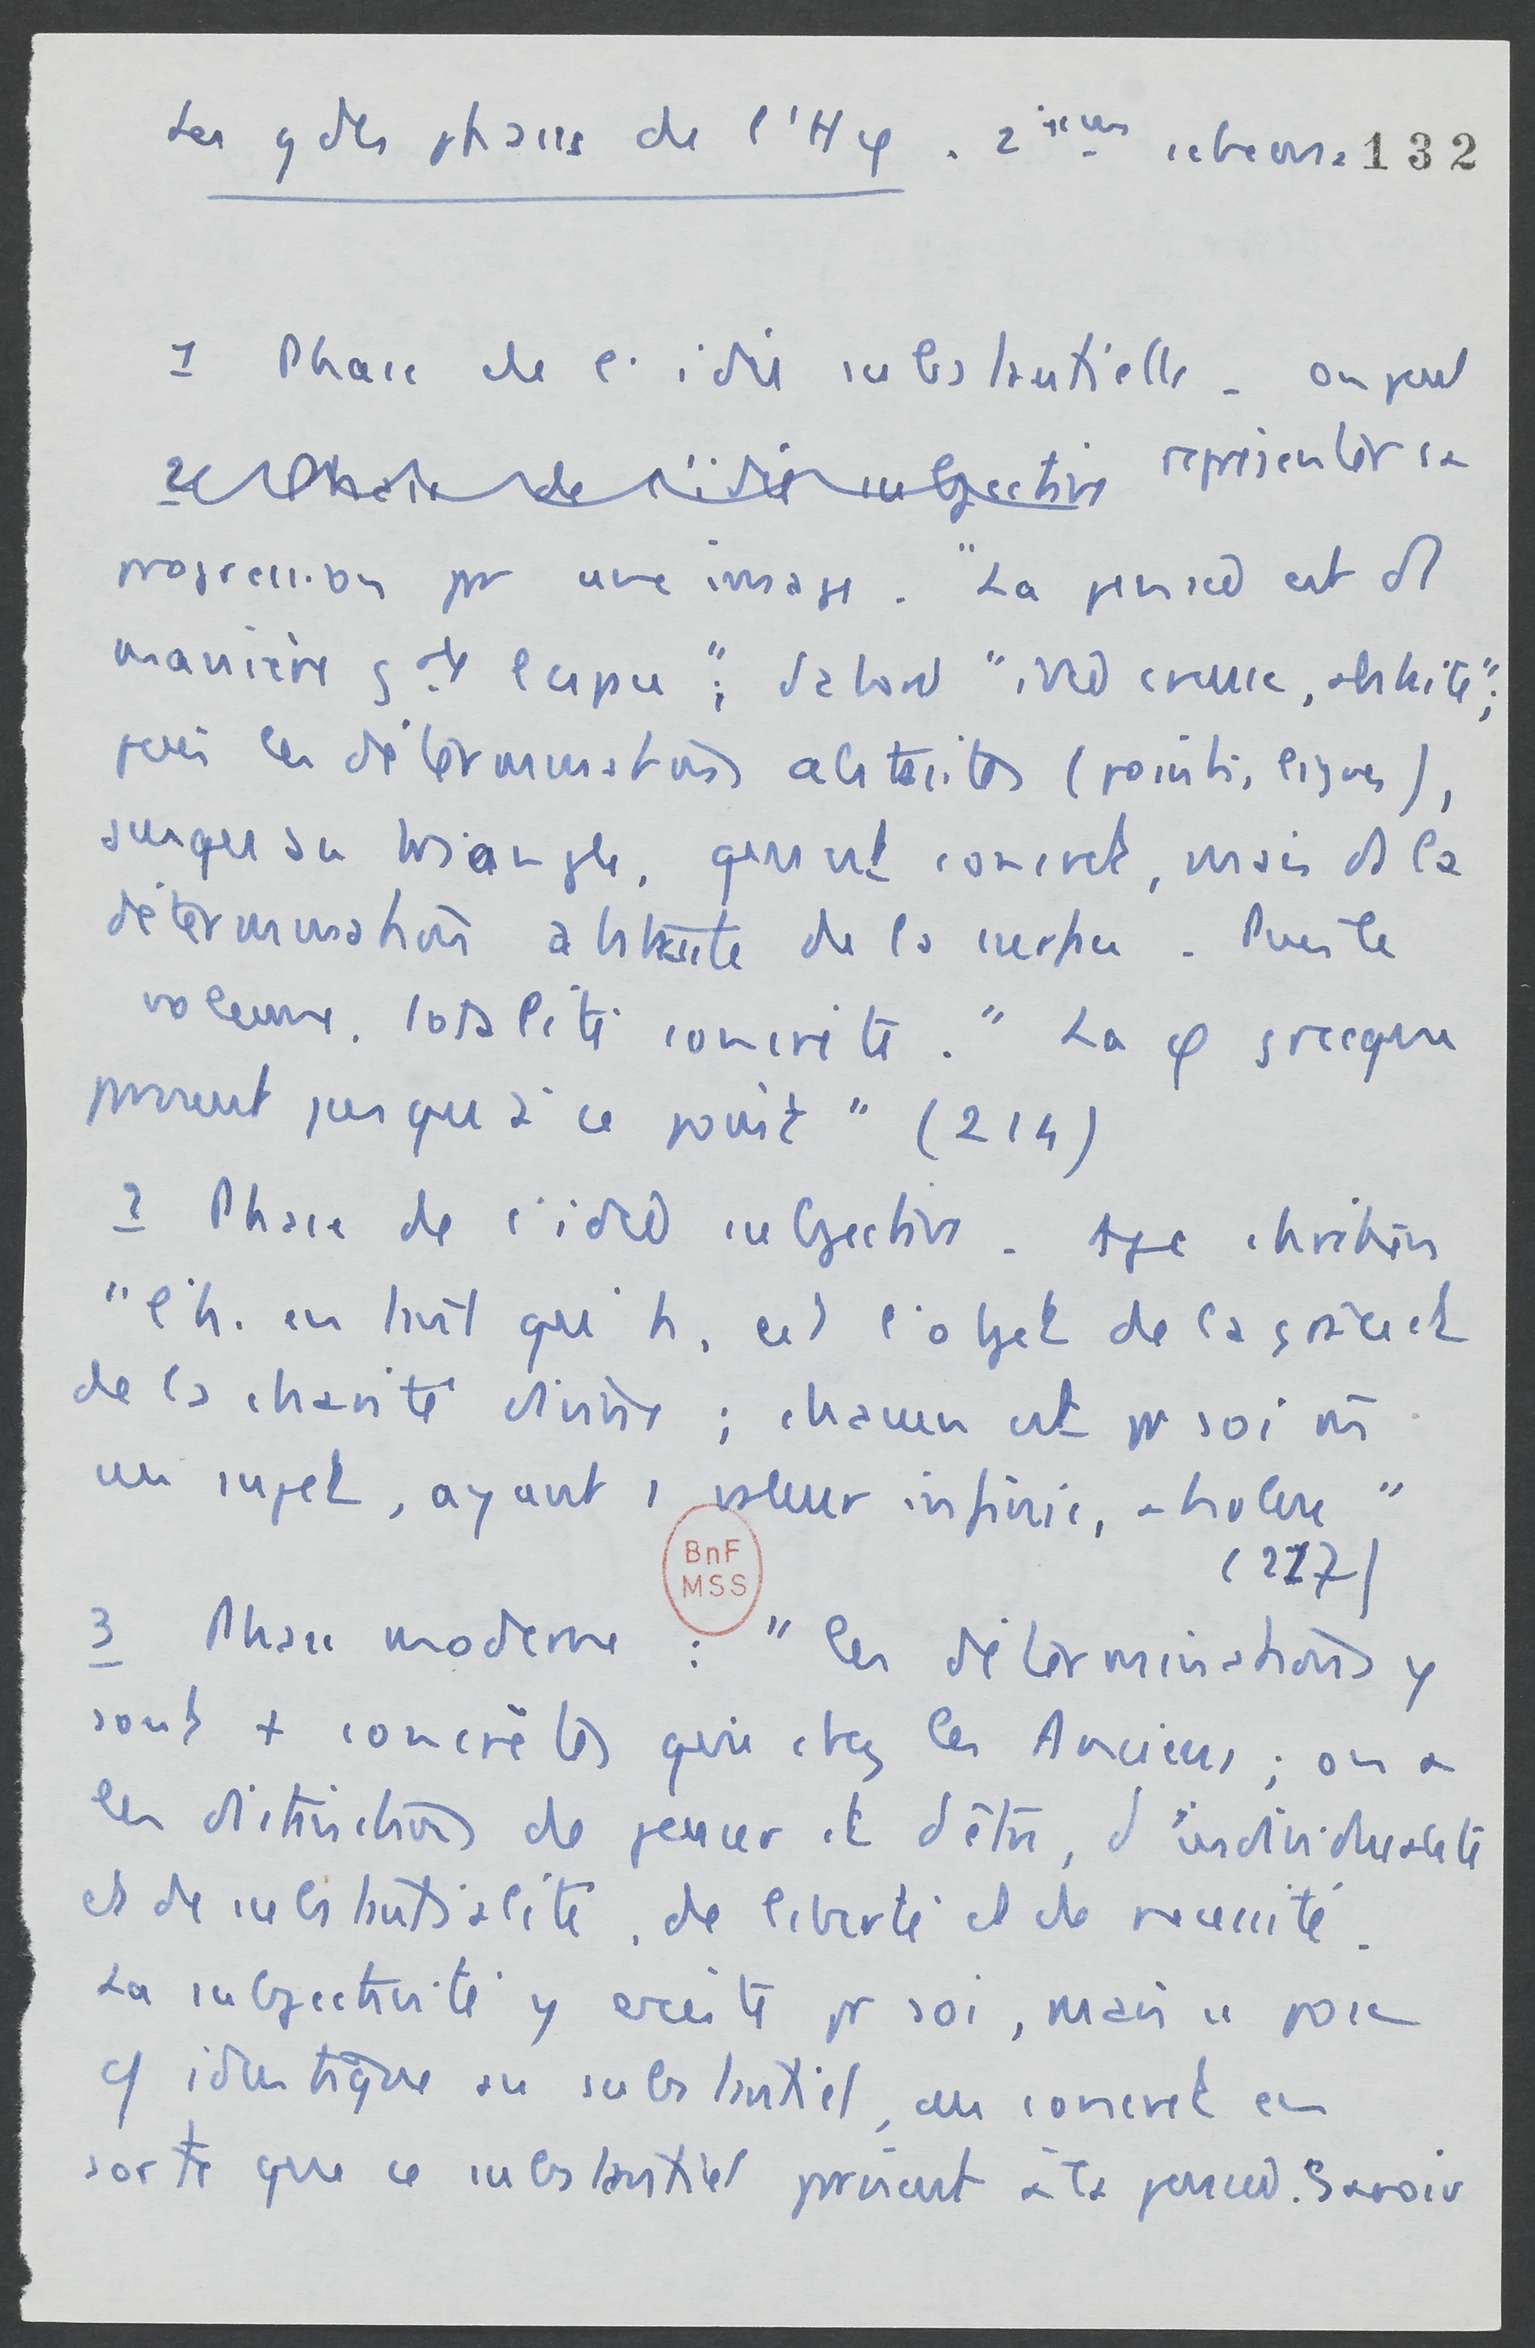 Les gdes phases de l'Hφ. 2ième schéma. 132
1 Phase de l'idée substantielle. On peut
2 Phase de l'idée subjective représenter sa
progression pr une image. "La pensée est de
manière gale espace"; d'abord "idée creuse, abstraite";
puis les déterminations abstraites (points, lignes),
jusqu'au triangle, qui est concret, mais ds la
détermination abstraite de la surface. Puis le
volume, totalité concrète." La φ grecque
parvient jusqu'à ce point" (214)
2 Phase de l'idée subjective. Age chrétien
"l'h. en tant que h. est l'objet de la grâce et
de la charité divine ; chacun est pr soi
un sujet, ayant 1 valeur infinie, absolue"
(217)
3 Phase moderne : "les déterminations y
sont + concrètes que chez les Anciens ; on a
les distinctions de penser et d'être, d'individualité
et de substantialité, de liberté et de nécessité.
La subjectivité y existe pr soi, mais se pose
cf identique au substantiel, au concret en
sorte que ce substantiel parvient à la pensée. Savoir
BnF
MSS